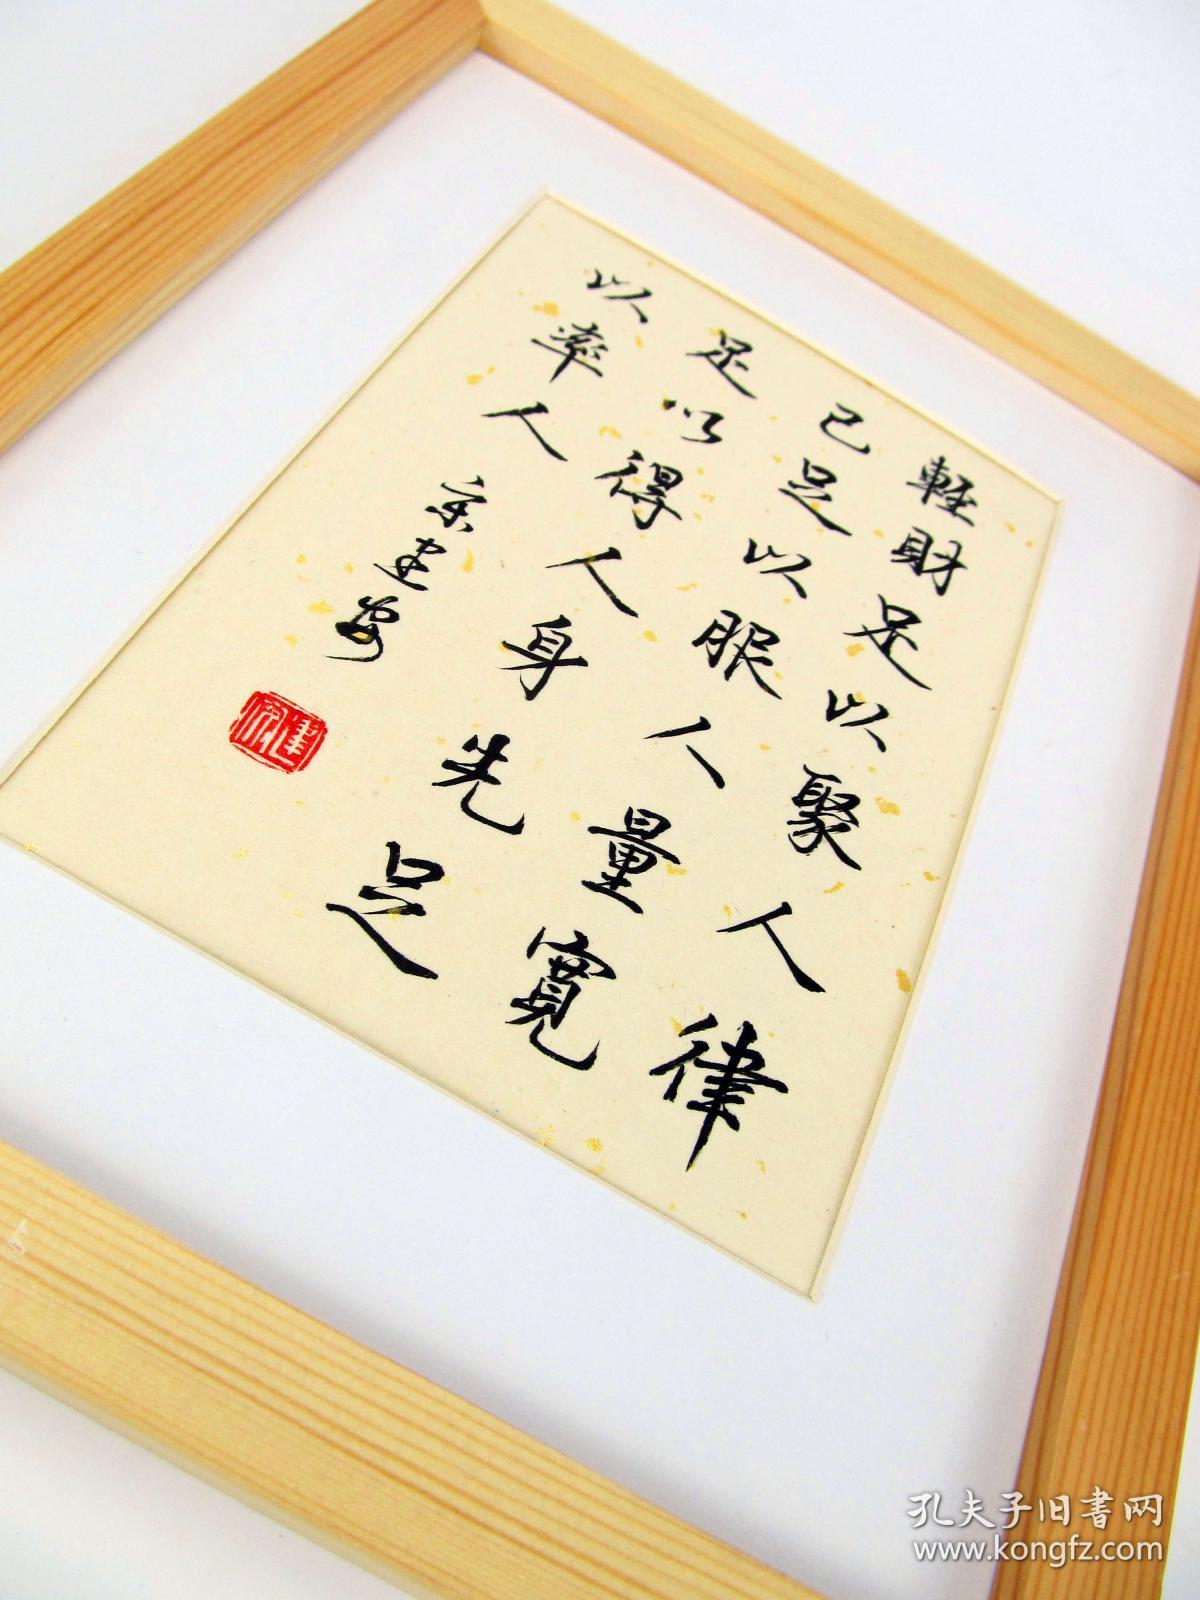 輕財足以聚人律
己足以服人量寬
足以得人身先足
以率人
孔夫子旧书网
www.kongfz.com